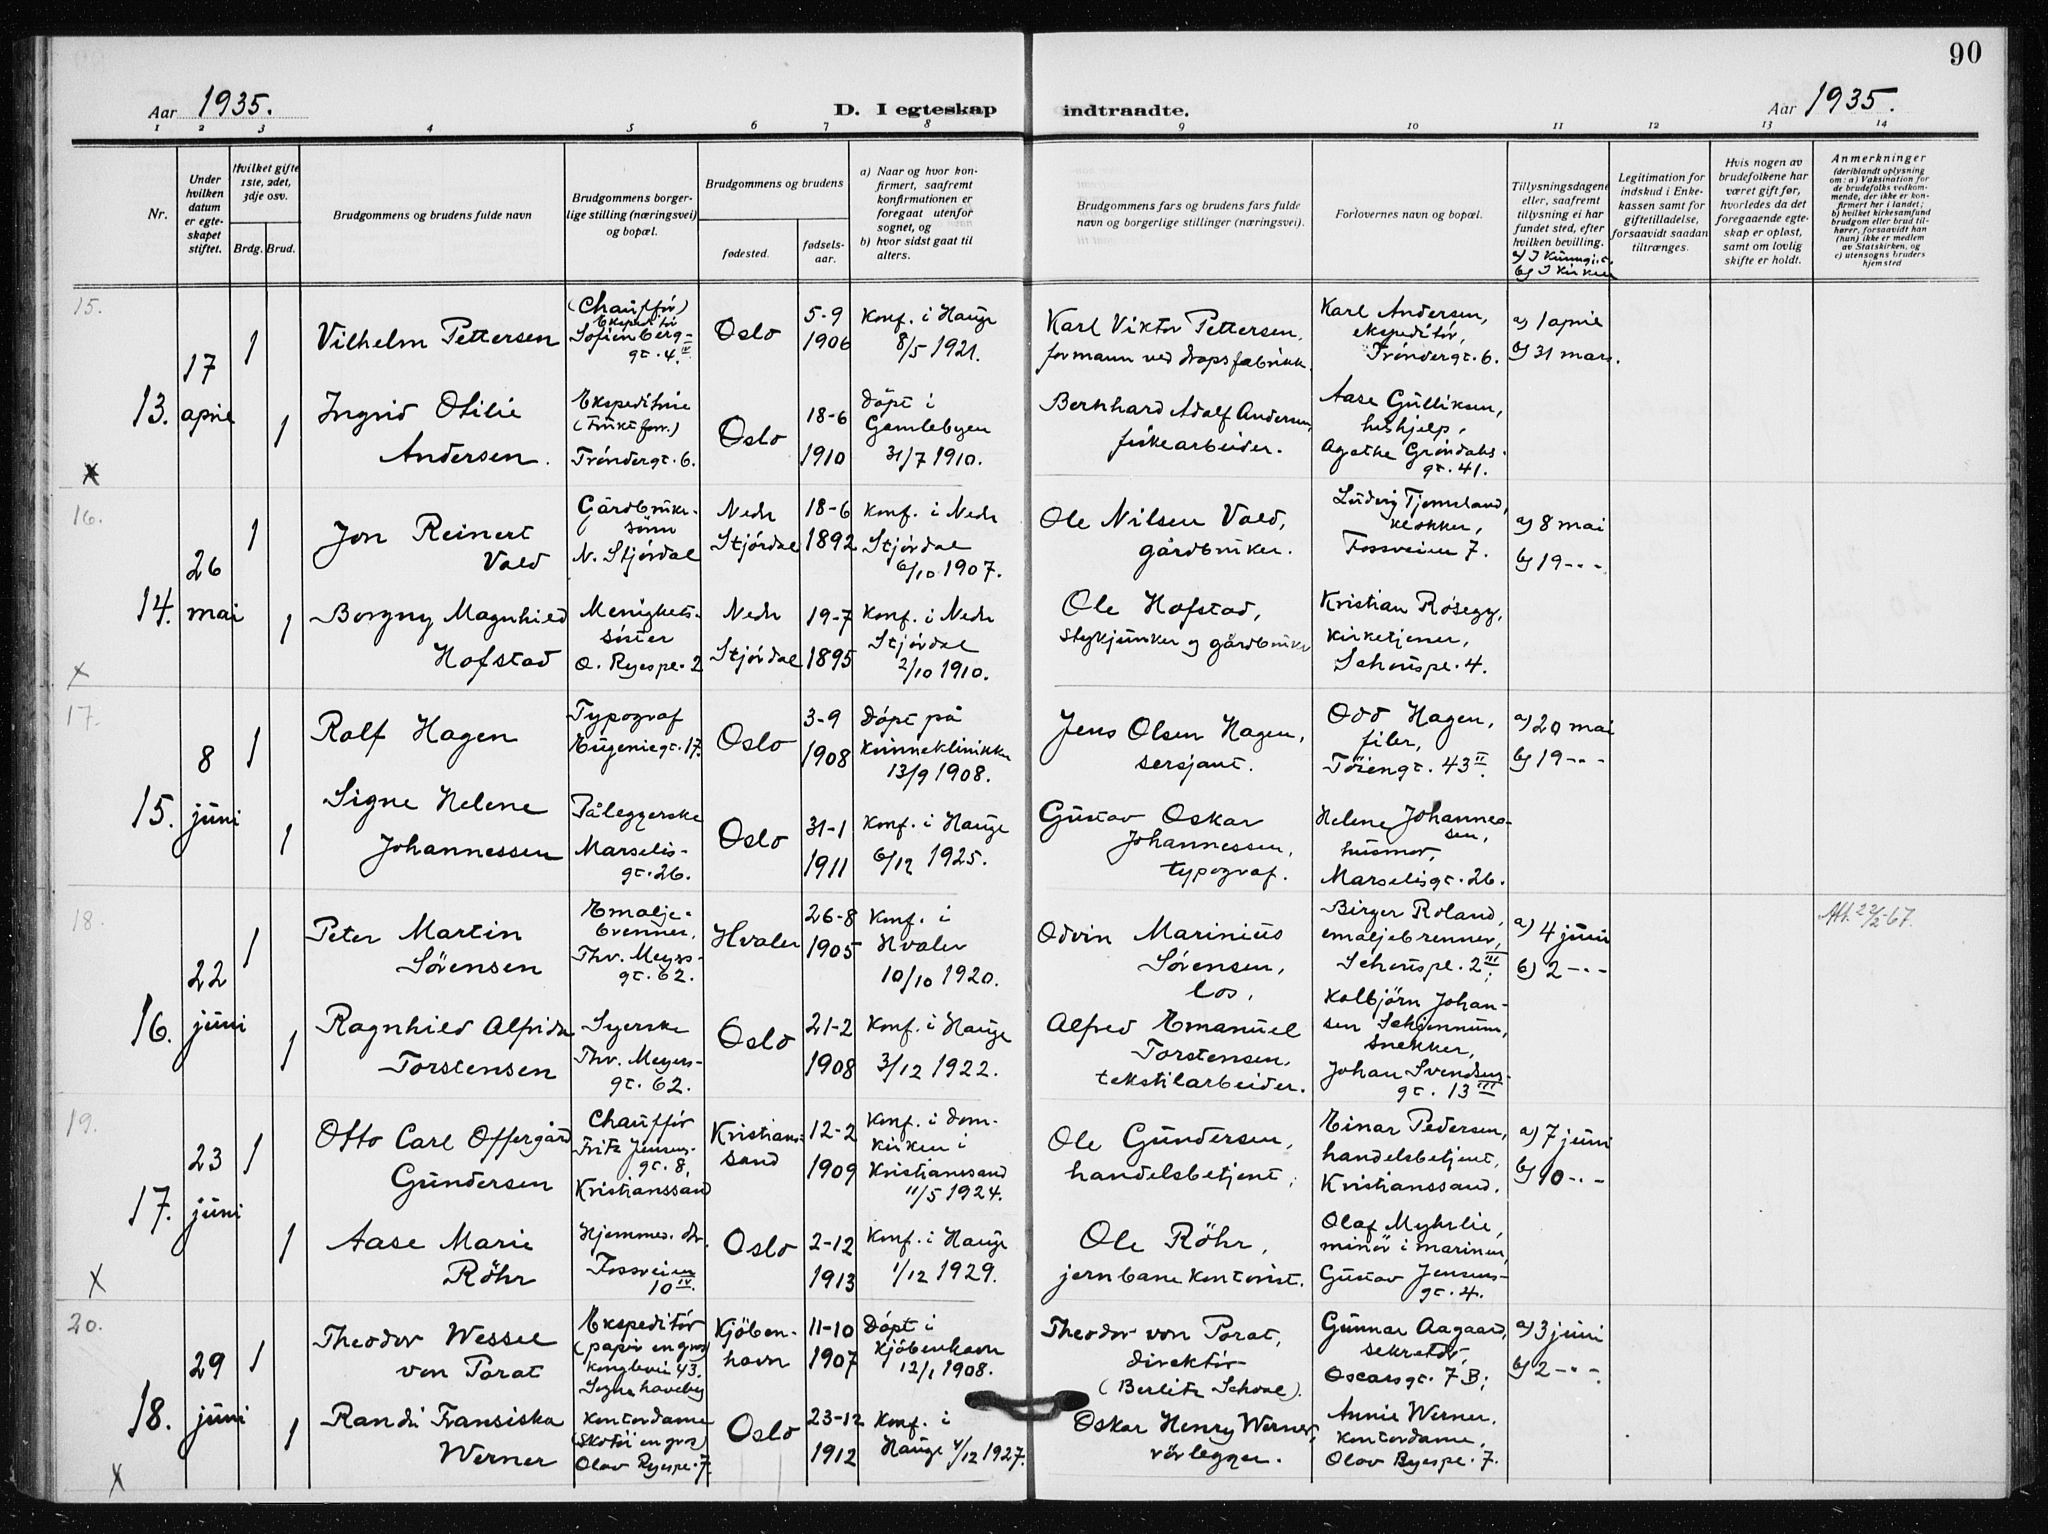 90
Aar 1935.
D. I egteskap indtraadte.
Aar 1935.
1 2 3 4 5 6 7 8 9 10 11 12 13 14
Nr.
Under
hvilken
datum
er egte-
skapet
stiftet.
Hvilket gifte
1ste, 2det,
3dje osv.
Brdg. Brud.
Brudgommens og brudens fulde navn
Brudgommens borger-
lige stilling (næringsvei)
og bopæl.
Brudgommens og brudens
fødested.
fødsels-
aar.
a) Naar og hvor kon-
firmert, saafremt
konfirmationen er
foregaat utenfor
sognet, og
b) hvor sidst gaat til
alters.
Brudgommens fars og brudens fars fulde
navn og borgerlige stillinger (næringsvei).
Forlovernes navn og bopæl.
Tillysningsdagene
eller, saafremt
tillysning ei har
fundet sted, efter
hvilken bevilling.
b) I kirken
Legitimation for
indskud i Enke-
kassen samt for
giftetilladelse,
forsaavidt saadan
tiltrænges.
Hvis nogen av
brudefolkene har
været gift før,
hvorledes da det
foregaaende egte-
skap er opløst,
samt om lovlig
skifte er holdt.
Anmerkninger
(deriblandt oplysning
om: a) Vaksination for
de brudefolks vedkom-
mende, der ikke er kon-
firmert her i landet;
b) hvilket kirkesamfund
brudgom eller brud til-
hører, forsaavidt han
(hun) ikke er medlem
av Statskirken, og
c) utensogns bruders
hjemsted
15.
13.
17
april
1
Vilhelm Pettersen
(Chauffør)
Ekspeditør
Sofienberg-
gt. 4. IV
Oslo
5-9
1906
Konf. i Hauge
8/5 1921.
Karl Viktor Pettersen,
formann ved dropsfabrikk.
Karl Andersen,
ekspeditør,
Trøndergt. 6.
a) 1 april
b) 31 mars.
1
Ingrid Otilie
Andersen.
Ekspeditrise
(Fruktforr.)
Trøndergt. 6.
Oslo
18-6
1910
Døpt i
Gamlebyen
31/7 1910.
Bernhard Adolf Andersen,
fiskearbeider.
Aase Gulliksen,
hushjelp,
Agathe Grøndahls-
gt. 41.
x
16.
14.
26
mai
1
Jon Reinert
Vold
Gårdbruker-
sønn
N. Stjørdal
Nedr
Stjørdal
18-6
1892
Konf. i Nedr
Stjørdal
6/10 1907.
Ole Nilsen Vold,
gårdbruker.
Ludvig Tjomsland,
klokker,
Fossveien 7.
a) 8 mai
b) 19 -"-
1
Borgny Magnhild
Hofstad
Menighets-
søster
O. Ryespl. 2
Nedr
Stjørdal
19-7
1895
Konf. i Nedr
Stjørdal
2/10 1910.
Ole Hofstad,
stykjunker og gårdbruker
Kristian Rosegg,
kirketjener,
Schouspl. 4.
x
17.
15.
8
juni
1
Rolf Hagen
Typograf
Eugeniegt. 17.
Oslo
3-9
1908
Døpt på
Kvinneklinikken
13/9 1908.
Jens Olsen Hagen,
sersjant.
Odd Hagen,
filer,
Tøiengt. 43 II.
a) 20 mai
b) 19 -"-
1
Signe Helene
Johannessen
Påleggerske
Marselis-
gt. 26.
Oslo
31-1
1911
Konf. i Hauge
6/12 1925.
Gustav Oskar
Johannessen,
typograf.
Helene Johannes-
sen,
husmor,
Marselisgt. 26.
18.
16.
22
juni
1
Peter Martin
Sørensen
Emalje-
brenner,
Thv. Meyers-
gt. 62.
Hvaler
26-8
1905
Konf. i
Hvaler
10/10 1920.
Odvin Marinius
Sørensen,
los,
Birger Roland,
emaljebrenner,
Schouspl. 2 III,
a) 4 juni
b) 2 -"-
Att. 22/2-67.
1
Ragnhild Alfrida
Torstensen
Syerske
Thv. Meyers-
gt. 62.
Oslo
21-2
1908
Konf. i Hauge
3/12 1922.
Alfred Emanuel
Torstensen,
tekstilarbeider.
Kolbjørn Johan-
sen Schjennum,
snekker,
Johan Svendsens-
gt. 13 III
19.
17.
23
juni
1
Otto Carl Offergård
Gundersen
Chauffør
Fritz Jensens-
gt. 8,
Kristianssand
Kristians-
sand
12-2
1909
Konf. i Dom-
kirken i
Kristianssand
11/5 1924.
Ole Gundersen,
handelsbetjent,
Einar Pedersen,
handelsbetjent,
Kristianssand.
a) 7 juni
b) 10 -"-
1
Aase Marie
Röhr
Hjemmev. dtr.
Fossveien
10 IV.
Oslo
2-12
1913
Konf. i Hauge
1/12 1929.
Ole Röhr,
jernbanekontorist.
Olaf Myhrlie,
minør i marinen,
Gustav Jensens-
gt. 4.
x
20.
18.
29
juni
1
Theodor Wessel
von Porat
Ekspeditør
(papir engros)
Konglevei 43.
Sogne haveby
Kjöben-
havn
11-10
1907
Døpt i
Kjöbenhavn
12/1 1908.
Theodor von Porat,
direktör
(Berlitz School).
Gunnar Aagaard,
sekretær,
Oscarsgt. 7 B;
a) 3 juni
b) 2 -"-
1
Randi Fransiska
Werner
Kontordame
(Skotøi engros)
Olav Ryespl. 7.
Oslo
23-12
1912
Konf. i
Hauge 4/12 1927.
Oskar Henry Werner,
rörlegger.
Annie Werner,
kontordame,
Olav Ryespl. 7.
x